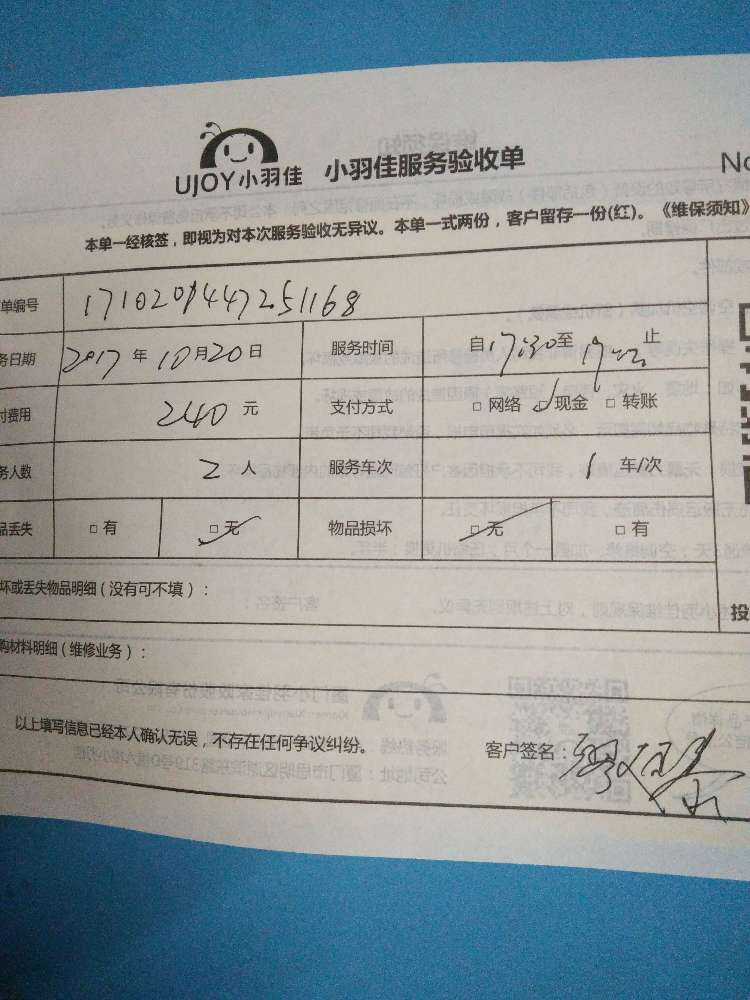 UJOY小羽佳 小羽佳服务验收单 No
本单一经核签，即视为对本次服务验收无异议。本单一式两份，客户留存一份(红)。《维保须知》
单编号 1710201447251168
务日期 2017年10月20日 服务时间 自17:30至 止
付费用 240元 支付方式 □网络 □现金 □转账
务人数 2人 服务车次 1车/次
品丢失 □有 □无 物品损坏 □无 □有
坏或丢失物品明细（没有可不填）：
购材料明细（维修业务）：
投
以上填写信息已经本人确认无误，不存在任何争议纠纷。 客户签名：